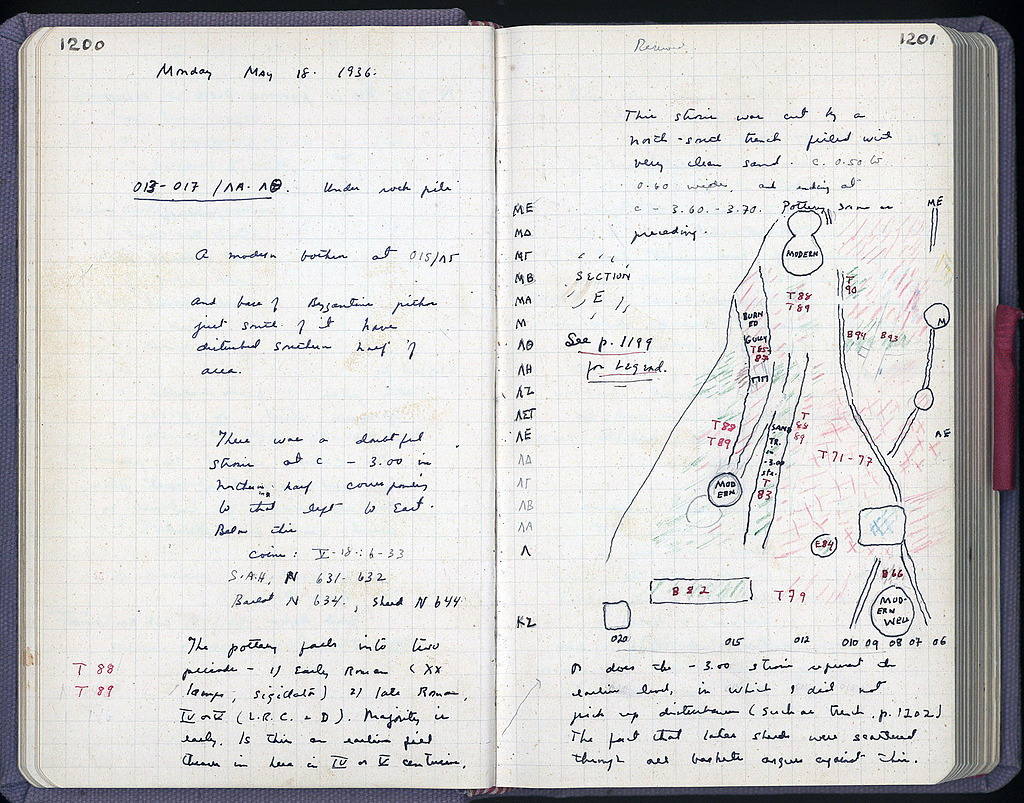 1200
Monday May 18. 1936.
013-017 / ΛΑ-ΛΘ. Under rock pile
A modern bothros at 015/ΛΕ
and base of Byzantine pithos
just south of it have
disturbed southern half of
area.
There was a doubtful
strosis at c - 3.00 in
northern half corresponding
to that left to East.
Below this
coins: V-18: 6-33
S.A.H. N 631-632
Basket N 634., Sherd N 644
T 88
T 89
The pottery falls into two
periods - 1) Early Roman (XX
lamps, sigillata) 2) late Roman,
IV or V (L.R.C. + D). Majority is
early. Is this an earlier fill
thrown in here in IV or V centuries,
1201
This strosis was cut by a
north-south trench filled with
very clean sand. c. 0.50 to
0.60 wide, and ending at
c - 3.60 - 3.70. Pottery same as
preceding.
ΜΕ
ΜΔ
ΜΓ
ΜΒ
ΜΑ
Μ
ΛΘ
ΛΗ
ΛΖ
ΛΣΤ
ΛΕ
ΛΔ
ΛΓ
ΛΒ
ΛΑ
Λ
ΚΖ
SECTION
E
See p. 1199
for Legend.
ΜΕ
MODERN
T 90
T 88
T 89
BURN
ED
GULLY
T 85-
87
B 94 B 93
M
ΛΕ
T 88
T 89
T
88
89
SAND
TR.
-3.00
T
83
T 71-77
MOD
ERN
E84
B 82
T 79
B 66
MOD-
ERN
WELL
020 015 012 010 09 08 07 06
or does the -3.00 strosis represent the
earlier level, in which I did not
pick up disturbances (such as trench, p. 1202)
The fact that later sherds were scattered
through all baskets argues against this.